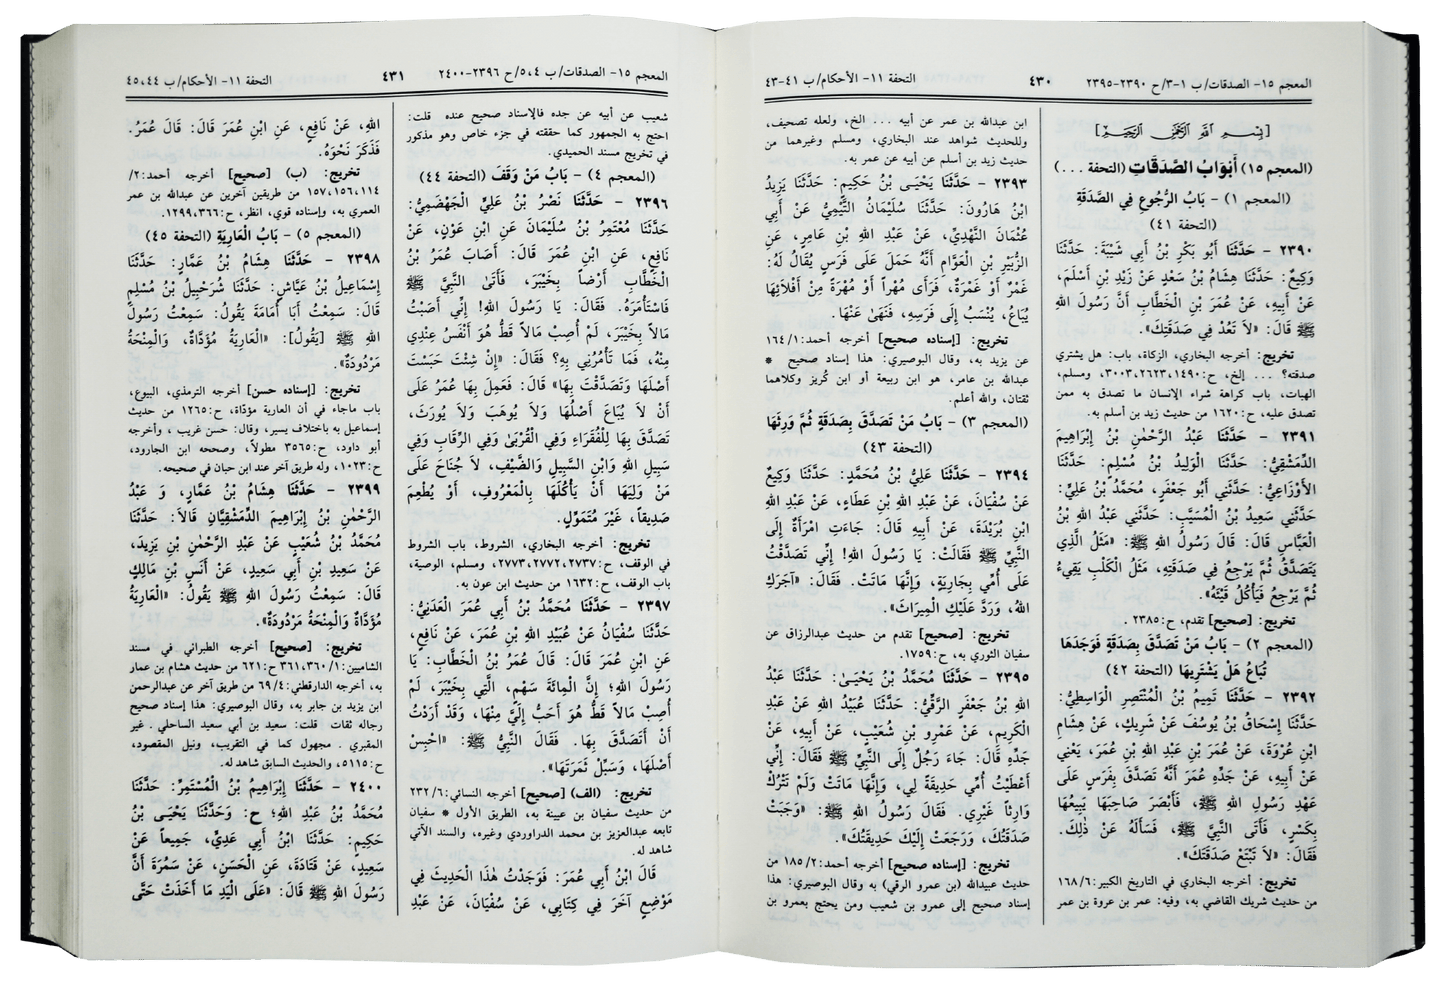 المعجم ١٥- الصدقات/ ب ١-٣/ ح ٢٣٩٠-٢٣٩٥
٤٣٠
التحفة ١١- الأحكام/ ب ٤١-٤٣
[بِسْمِ اللهِ الرَّحْمٰنِ الرَّحِيمِ]
(المعجم ١٥) أَبْوَابُ الصَّدَقَاتِ (التحفة ...)
(المعجم ١) - بَابُ الرُّجُوعِ فِي الصَّدَقَةِ
(التحفة ٤١)
٢٣٩٠ - حَدَّثَنَا أَبُو بَكْرِ بْنُ أَبِي شَيْبَةَ: حَدَّثَنَا
وَكِيعٌ: حَدَّثَنَا هِشَامُ بْنُ سَعْدٍ عَنْ زَيْدِ بْنِ أَسْلَمَ،
عَنْ أَبِيهِ، عَنْ عُمَرَ بْنِ الْخَطَّابِ أَنَّ رَسُولَ اللهِ
ﷺ قَالَ: «لاَ تَعُدْ فِي صَدَقَتِكَ».
تخريج: أخرجه البخاري، الزكاة، باب: هل يشتري
صدقته؟ ... إلخ، ح:١٤٩٠،٢٦٢٣،٣٠٠٣، ومسلم،
الهبات، باب كراهة شراء الإنسان ما تصدق به ممن
تصدق عليه، ح:١٦٢٠ من حديث زيد بن أسلم به.
٢٣٩١ - حَدَّثَنَا عَبْدُ الرَّحْمٰنِ بْنُ إِبْرَاهِيمَ
الدِّمَشْقِيُّ: حَدَّثَنَا الْوَلِيدُ بْنُ مُسْلِمٍ: حَدَّثَنَا
الأَوْزَاعِيُّ: حَدَّثَنِي أَبُو جَعْفَرٍ، مُحَمَّدُ بْنُ عَلِيٍّ:
حَدَّثَنِي سَعِيدُ بْنُ الْمُسَيَّبِ: حَدَّثَنِي عَبْدُ اللهِ بْنُ
الْعَبَّاسِ قَالَ: قَالَ رَسُولُ اللهِ ﷺ: «مَثَلُ الَّذِي
يَتَصَدَّقُ ثُمَّ يَرْجِعُ فِي صَدَقَتِهِ، مَثَلُ الْكَلْبِ يَقِيءُ
ثُمَّ يَرْجِعُ فَيَأْكُلُ قَيْئَهُ».
تخريج: [صحيح] تقدم، ح:٢٣٨٥.
(المعجم ٢) - بَابُ مَنْ تَصَدَّقَ بِصَدَقَةٍ فَوَجَدَهَا
تُبَاعُ هَلْ يَشْتَرِيهَا (التحفة ٤٢)
٢٣٩٢ - حَدَّثَنَا تَمِيمُ بْنُ الْمُنْتَصِرِ الْوَاسِطِيُّ:
حَدَّثَنَا إِسْحَاقُ بْنُ يُوسُفَ عَنْ شَرِيكٍ، عَنْ هِشَامِ
ابْنِ عُرْوَةَ، عَنْ عُمَرَ بْنِ عَبْدِ اللهِ بْنِ عُمَرَ، يَعْنِي
عَنْ أَبِيهِ، عَنْ جَدِّهِ عُمَرَ أَنَّهُ تَصَدَّقَ بِفَرَسٍ عَلَى
عَهْدِ رَسُولِ اللهِ ﷺ، فَأَبْصَرَ صَاحِبَهَا يَبِيعُهَا
بِكَسْرٍ، فَأَتَى النَّبِيَّ ﷺ، فَسَأَلَهُ عَنْ ذٰلِكَ.
فَقَالَ: «لاَ تَبْتَعْ صَدَقَتَكَ».
تخريج: أخرجه البخاري في التاريخ الكبير:١٦٨/٦
من حديث شريك القاضي به، وفيه: عمر بن عروة بن عمر
ابن عبدالله بن عمر عن أبيه ... الخ، ولعله تصحيف،
وللحديث شواهد عند البخاري، ومسلم وغيرهما من
حديث زيد بن أسلم عن أبيه عن عمر به.
٢٣٩٣ - حَدَّثَنَا يَحْيَى بْنُ حَكِيمٍ: حَدَّثَنَا يَزِيدُ
ابْنُ هَارُونَ: حَدَّثَنَا سُلَيْمَانُ التَّيْمِيُّ عَنْ أَبِي
عُثْمَانَ النَّهْدِيِّ، عَنْ عَبْدِ اللهِ بْنِ عَامِرٍ، عَنِ
الزُّبَيْرِ بْنِ الْعَوَّامِ أَنَّهُ حَمَلَ عَلَى فَرَسٍ يُقَالُ لَهُ:
غَمْرٌ أَوْ غَمْرَةٌ، فَرَأَى مُهْراً أَوْ مُهْرَةً مِنْ أَفْلاَئِهَا
يُبَاعُ، يُنْسَبُ إِلَى فَرَسِهِ، فَنَهَىٰ عَنْهَا.
تخريج: [إسناده صحيح] أخرجه أحمد:١٦٤/١
عن يزيد به، وقال البوصيري: هذا إسناد صحيح *
عبدالله بن عامر، هو ابن ربيعة أو ابن كُريز وكلاهما
ثقتان، والله أعلم.
(المعجم ٣) - بَابُ مَنْ تَصَدَّقَ بِصَدَقَةٍ ثُمَّ وَرِثَهَا
(التحفة ٤٣)
٢٣٩٤ - حَدَّثَنَا عَلِيُّ بْنُ مُحَمَّدٍ: حَدَّثَنَا وَكِيعٌ
عَنْ سُفْيَانَ، عَنْ عَبْدِ اللهِ بْنِ عَطَاءٍ، عَنْ عَبْدِ اللهِ
ابْنِ بُرَيْدَةَ، عَنْ أَبِيهِ قَالَ: جَاءَتِ امْرَأَةٌ إِلَى
النَّبِيِّ ﷺ فَقَالَتْ: يَا رَسُولَ اللهِ! إِنِّي تَصَدَّقْتُ
عَلَى أُمِّي بِجَارِيَةٍ، وَإِنَّهَا مَاتَتْ. فَقَالَ: «آجَرَكِ
اللهُ، وَرَدَّ عَلَيْكِ الْمِيرَاثَ».
تخريج: [صحيح] تقدم من حديث عبدالرزاق عن
سفيان الثوري به، ح:١٧٥٩.
٢٣٩٥ - حَدَّثَنَا مُحَمَّدُ بْنُ يَحْيَىٰ: حَدَّثَنَا عَبْدُ
اللهِ بْنُ جَعْفَرٍ الرَّقِّيُّ: حَدَّثَنَا عُبَيْدُ اللهِ عَنْ عَبْدِ
الْكَرِيمِ، عَنْ عَمْرِو بْنِ شُعَيْبٍ، عَنْ أَبِيهِ، عَنْ
جَدِّهِ قَالَ: جَاءَ رَجُلٌ إِلَى النَّبِيِّ ﷺ فَقَالَ: إِنِّي
أَعْطَيْتُ أُمِّي حَدِيقَةً لِي، وَإِنَّهَا مَاتَتْ وَلَمْ تَتْرُكْ
وَارِثاً غَيْرِي. فَقَالَ رَسُولُ اللهِ ﷺ: «وَجَبَتْ
صَدَقَتُكَ، وَرَجَعَتْ إِلَيْكَ حَدِيقَتُكَ».
تخريج: [إسناده صحيح] أخرجه أحمد:١٨٥/٢ من
حديث عبيدالله (بن عمرو الرقي) به وقال البوصيري: هذا
إسناد صحيح إلى عمرو بن شعيب ومن يحتج بعمرو بن
المعجم ١٥- الصدقات/ ب ٤،٥/ ح ٢٣٩٦-٢٤٠٠
٤٣١
التحفة ١١- الأحكام/ ب ٤٤،٤٥
شعيب عن أبيه عن جده فالإسناد صحيح عنده قلت:
احتج به الجمهور كما حققته في جزء خاص وهو مذكور
في تخريج مسند الحميدي.
(المعجم ٤) - بَابُ مَنْ وَقَفَ (التحفة ٤٤)
٢٣٩٦ - حَدَّثَنَا نَصْرُ بْنُ عَلِيٍّ الْجَهْضَمِيُّ:
حَدَّثَنَا مُعْتَمِرُ بْنُ سُلَيْمَانَ عَنِ ابْنِ عَوْنٍ، عَنْ
نَافِعٍ، عَنِ ابْنِ عُمَرَ قَالَ: أَصَابَ عُمَرُ بْنُ
الْخَطَّابِ أَرْضاً بِخَيْبَرَ، فَأَتَىٰ النَّبِيَّ ﷺ
فَاسْتَأْمَرَهُ. فَقَالَ: يَا رَسُولَ اللهِ! إِنِّي أَصَبْتُ
مَالاً بِخَيْبَرَ، لَمْ أُصِبْ مَالاً قَطُّ هُوَ أَنْفَسُ عِنْدِي
مِنْهُ، فَمَا تَأْمُرُنِي بِهِ؟ فَقَالَ: «إِنْ شِئْتَ حَبَسْتَ
أَصْلَهَا وَتَصَدَّقْتَ بِهَا» قَالَ: فَعَمِلَ بِهَا عُمَرُ عَلَى
أَنْ لاَ يُبَاعَ أَصْلُهَا وَلاَ يُوهَبَ وَلاَ يُورَثَ،
تَصَدَّقَ بِهَا لِلْفُقَرَاءِ وَفِي الْقُرْبَىٰ وَفِي الرِّقَابِ وَفِي
سَبِيلِ اللهِ وَابْنِ السَّبِيلِ وَالضَّيْفِ، لاَ جُنَاحَ عَلَى
مَنْ وَلِيَهَا أَنْ يَأْكُلَهَا بِالْمَعْرُوفِ، أَوْ يُطْعِمَ
صَدِيقاً، غَيْرَ مُتَمَوِّلٍ.
تخريج: أخرجه البخاري، الشروط، باب الشروط
في الوقف، ح:٢٧٣٧،٢٧٧٢،٢٧٧٣، ومسلم، الوصية،
باب الوقف، ح:١٦٣٢ من حديث ابن عون به.
٢٣٩٧ - حَدَّثَنَا مُحَمَّدُ بْنُ أَبِي عُمَرَ الْعَدَنِيُّ:
حَدَّثَنَا سُفْيَانُ عَنْ عُبَيْدِ اللهِ بْنِ عُمَرَ، عَنْ نَافِعٍ،
عَنِ ابْنِ عُمَرَ قَالَ: قَالَ عُمَرُ بْنُ الْخَطَّابِ: يَا
رَسُولَ اللهِ؛ إِنَّ الْمِائَةَ سَهْمٍ، الَّتِي بِخَيْبَرَ، لَمْ
أُصِبْ مَالاً قَطُّ هُوَ أَحَبُّ إِلَيَّ مِنْهَا، وَقَدْ أَرَدْتُ
أَنْ أَتَصَدَّقَ بِهَا. فَقَالَ النَّبِيُّ ﷺ: «احْبِسْ
أَصْلَهَا، وَسَبِّلْ ثَمَرَتَهَا».
تخريج: (الف) [صحيح] أخرجه النسائي:٢٣٢/٦
من حديث سفيان بن عيينة به، الطريق الأول * سفيان
تابعه عبدالعزيز بن محمد الدراوردي وغيره، والسند الآتي
شاهد له.
قَالَ ابْنُ أَبِي عُمَرَ: فَوَجَدْتُ هٰذَا الْحَدِيثَ فِي
مَوْضِعٍ آخَرَ فِي كِتَابِي، عَنْ سُفْيَانَ، عَنْ عَبْدِ
اللهِ، عَنْ نَافِعٍ، عَنِ ابْنِ عُمَرَ قَالَ: قَالَ عُمَرُ.
فَذَكَرَ نَحْوَهُ.
تخريج: (ب) [صحيح] أخرجه أحمد:٢/
١١٤،١٥٦،١٥٧ من طريقين آخرين عن عبدالله بن عمر
العمري به، وإسناده قوي، انظر، ح:٣٦٦،١٢٩٩.
(المعجم ٥) - بَابُ الْعَارِيَةِ (التحفة ٤٥)
٢٣٩٨ - حَدَّثَنَا هِشَامُ بْنُ عَمَّارٍ: حَدَّثَنَا
إِسْمَاعِيلُ بْنُ عَيَّاشٍ: حَدَّثَنَا شُرَحْبِيلُ بْنُ مُسْلِمٍ
قَالَ: سَمِعْتُ أَبَا أُمَامَةَ يَقُولُ: سَمِعْتُ رَسُولَ
اللهِ ﷺ [يَقُولُ]: «الْعَارِيَةُ مُؤَدَّاةٌ، وَالْمِنْحَةُ
مَرْدُودَةٌ».
تخريج: [إسناده حسن] أخرجه الترمذي، البيوع،
باب ماجاء في أن العارية مؤداة، ح:١٢٦٥ من حديث
إسماعيل به باختلاف يسير، وقال: حسن غريب ، وأخرجه
أبو داود، ح:٣٥٦٥ مطولاً، وصححه ابن الجارود،
ح:١٠٢٣، وله طريق آخر عند ابن حبان في صحيحه.
٢٣٩٩ - حَدَّثَنَا هِشَامُ بْنُ عَمَّارٍ، وَ عَبْدُ
الرَّحْمٰنِ بْنُ إِبْرَاهِيمَ الدِّمَشْقِيَّانِ قَالاَ: حَدَّثَنَا
مُحَمَّدُ بْنُ شُعَيْبٍ عَنْ عَبْدِ الرَّحْمٰنِ بْنِ يَزِيدَ،
عَنْ سَعِيدِ بْنِ أَبِي سَعِيدٍ، عَنْ أَنَسِ بْنِ مَالِكٍ
قَالَ: سَمِعْتُ رَسُولَ اللهِ ﷺ يَقُولُ: «الْعَارِيَةُ
مُؤَدَّاةٌ وَالْمِنْحَةُ مَرْدُودَةٌ».
تخريج: [صحيح] أخرجه الطبراني في مسند
الشاميين:١/٣٦٠،٣٦١ ح:٦٢١ من حديث هشام بن عمار
به، أخرجه الدارقطني:٦٩/٤ من طريق آخر عن عبدالرحمن
ابن يزيد بن جابر به، وقال البوصيري: هذا إسناد صحيح
رجاله ثقات قلت: سعيد بن أبي سعيد الساحلي . غير
المقبري . مجهول كما في التقريب، ونيل المقصود،
ح:٥١١٥، والحديث السابق شاهد له.
٢٤٠٠ - حَدَّثَنَا إِبْرَاهِيمُ بْنُ الْمُسْتَمِرِّ: حَدَّثَنَا
مُحَمَّدُ بْنُ عَبْدِ اللهِ؛ ح: وَحَدَّثَنَا يَحْيَى بْنُ
حَكِيمٍ: حَدَّثَنَا ابْنُ أَبِي عَدِيٍّ، جَمِيعاً عَنْ
سَعِيدٍ، عَنْ قَتَادَةَ، عَنِ الْحَسَنِ، عَنْ سَمُرَةَ أَنَّ
رَسُولَ اللهِ ﷺ قَالَ: «عَلَى الْيَدِ مَا أَخَذَتْ حَتَّى